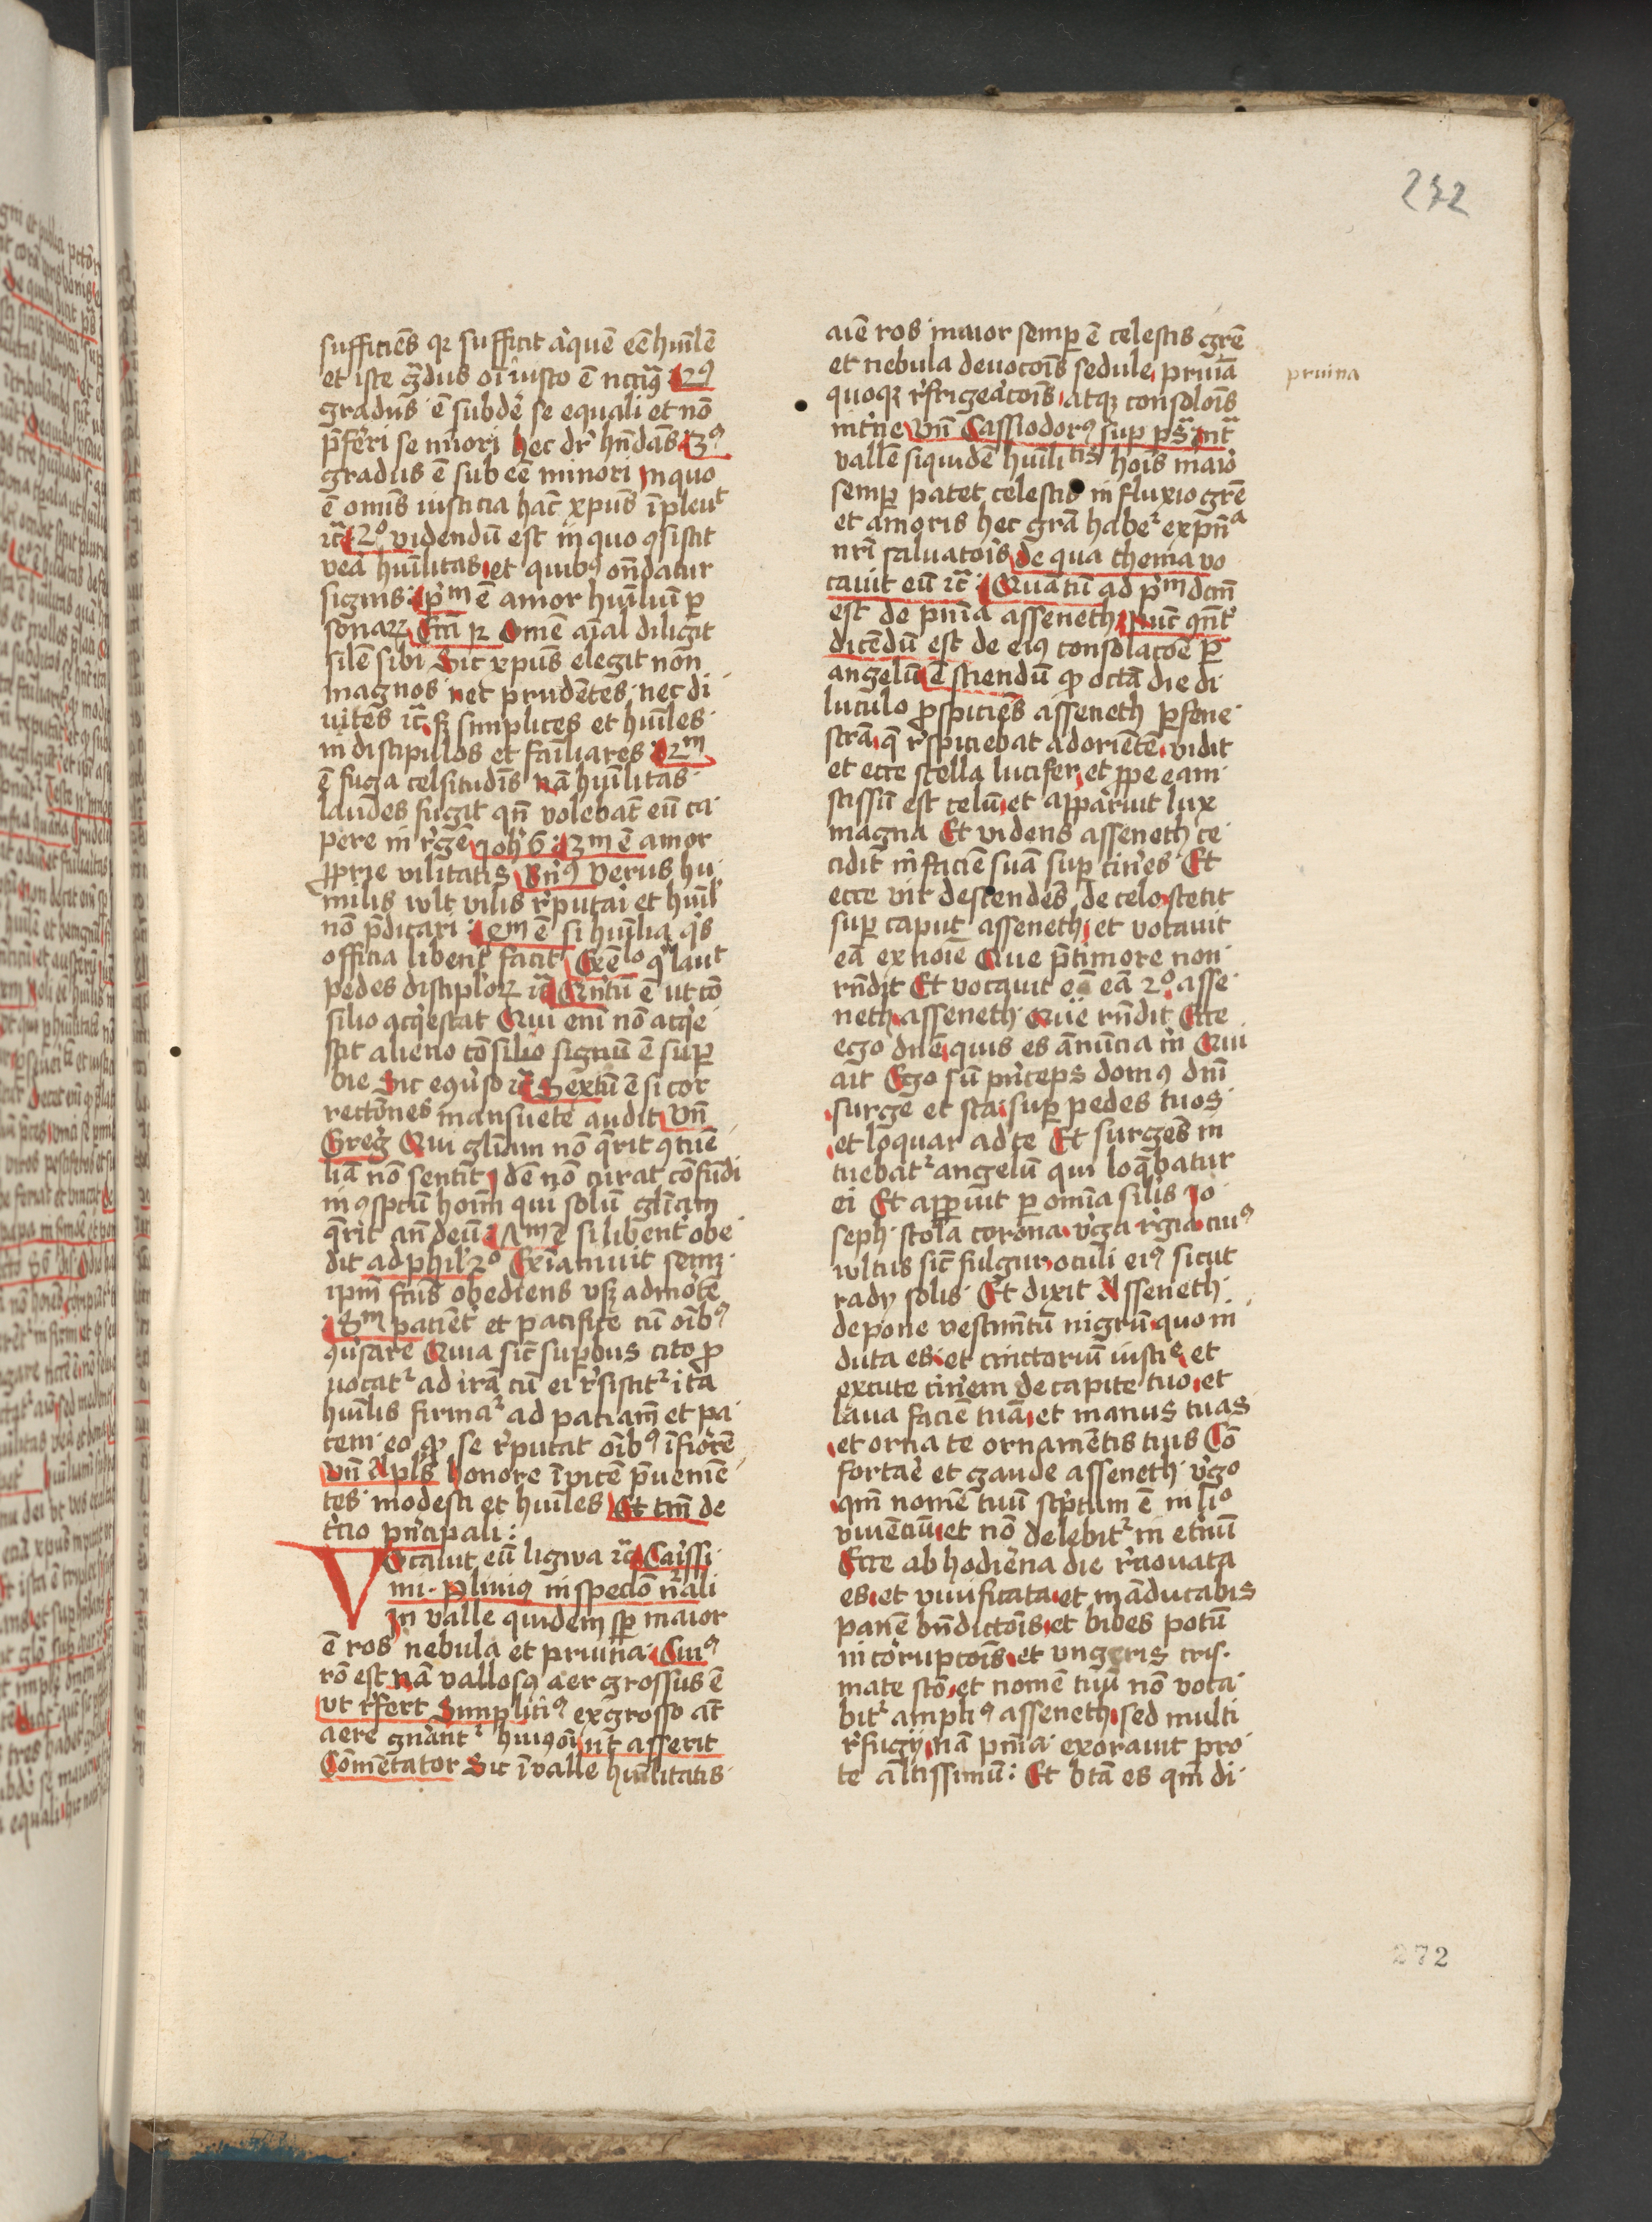 272
sufficiēs qz sufficit aq̇uē eē hūilē
et iste g̃dus oī iusto ē nc̄cius 2ꝰ
gradus ē subdē se equali et nō
p̄ferri se mīori hec dr̄ hn̄dās 3ꝰ
gradus ē sub eē minori in quo
ē omīs iusticia hāc xpūs īpleuͭ
ic̄ 2º videndū est in quo ꝯsistit
vea hūilitas et quibꝰ on̄datur
signis pͫ ē amor hūiliū ꝑ
sonaꝝ Om̄e aīal diligit
silē sibi Sic xpūs elegit non
magnos nec prudētes nec di
uites ic̄ sꝫ simplices et hūiles
in discipulos et fāiliares 2ͫ
ē fuga celsitudīs nā hūilitas
laudes fugit qn̄ volebāt eū ca
pere in r̄gē Joh̄ 6 3m ē amor
ꝓprie vilitatis Verus hu
milis wlt vilis r̄putari et hūil
nō p̄dicari 4m ē si hūilia q̇s
officia libent̄ facit Exēͦ q̇ lauͭ
pedes disciploꝝ ic̄ Qn̄tū ē ut cō
silio acq̇escat Qui enī nō acq̇e
scit alieno cōsilio signū ē suꝑ
bie Sic ic̄ Sextū ē si cor
rectōnes mansuete audit vn̄
Greḡ Qui gl̄iam nō q̄rit ꝯtume
liā nō sentit Idē nō curat cōfūdi
in ꝯspc̄tu hoīm qui solū gl̄iam
q̄rit an̄ deū 7m ē si libent̄ obe
dit ad phil̄ 2º Exīaniuit semꝫ
ipm̄ fc̄us obediens vsqꝫ ad mortē
8m patient̄ et pacifice cū oībꝰ
ꝯu̇sare Quia sic̄ suꝑbus cito ꝓ
uocatᷣ ad irā cū ei r̄sistitᷣ ita
hūilis firmaᷣ ad pac̄iam et pa
cem eo ꝙ se r̄putat oībꝰ īfiorē
vn̄ Apl̄s honore īvicē p̄uenīē
tes modesti et hūiles Et tm̄ de
tercio pn̄cipali
Vocauit eū ligwa ic̄ Carissi
mi Plinius in spec̄lo nᷣali
In valle quidem sꝑ maior
ē ros nebula et pruina Cuiꝰ
rō est nā vallosus aer grossus ē
vt r̄fert Simplitiꝰ ex grosso aūt
aere gn̄antᷣ huiꝰōi ut asserit
Cōmētator Sic ī valle hūilitatis
aīe ros maior semꝑ ē celestis gr̄e
et nebula deuocōis sedule pruīa
quoqꝫ r̄frigeac̄ōis atqꝫ consolōis
int̄ne vn̄ Cassiodorꝰ suꝑ ps̄ Int̄
vallē siquidē hūiliᵗⁱˢ hoīs maiꝰ
semꝑ patet celestis influxio gr̄e
et amoris hec gr̄a habeᷣ ex pn̄ᵃ
nr̄i saluatoīs de qua thema vo
cauit eū ic̄ Quātū ad pͫ dc̄m
est de pn̄ia asseneth Nūc ꝯnt̄
dicēdū est de eiꝰ consolac̄ōe ꝑ
angelū ē sciendū ꝙ octā die di
luculo ꝓspiciēs asseneth ꝑ fene
strā q̄ r̄spiciebat ad oriētē vidit
et ecce stella lucifer et ꝓpe eam
scissū est celū et apparuit lux
magna Et videns asseneth ce
cidit in faciē suā suꝑ cinēs Et
ecce vir descendēs de celo stetit
suꝑ caput asseneth et vocauit
eā ex noīe Que p̄ timore non
rn̄dit Et vocauit eā 2º asse
neth asseneth Que rn̄dit Ecce
ego dn̄e quis es ānūcia m̄ Qui
ait Ego sū pn̄ceps domꝰ dn̄i
surge et sta suꝑ pedes tuos
et loquar ad te Et surgēs in
tuebatᷣ angelū qui loq̄batur
ei Et apparuit ꝑ omīa silīs Jo
seph stola corona v̄ga r̄gia cuiꝰ
wltus sic̄ fulgur oculi eiꝰ sicut
radij solis Et dixit Asseneth
depone vestimn̄tū nigrū quo in
duta es et cinctoriū et
excute cinēm de capite tuo et
laua faciē tuā et manus tuas
et orna te ornamētis tuis Cō
fortare et gaude asseneth v̄go
qm̄ nomē tuū sc̄ptum ē in liº
viuēciū et nō delebitᷣ in et̄nū
Ecce ab hodierna die r̄nouata
es et viuificata et māducabis
panē bn̄dictōis et bibes potū
incorupcōis et vngeris cris
mate sc̄o et nomē tuū nō voca
bitᷣ ampliꝰ asseneth sed multi
r̄fugij nā pn̄ia exorauit pro
te altissimū Et bt̄a es qm̄ di
pruina
272